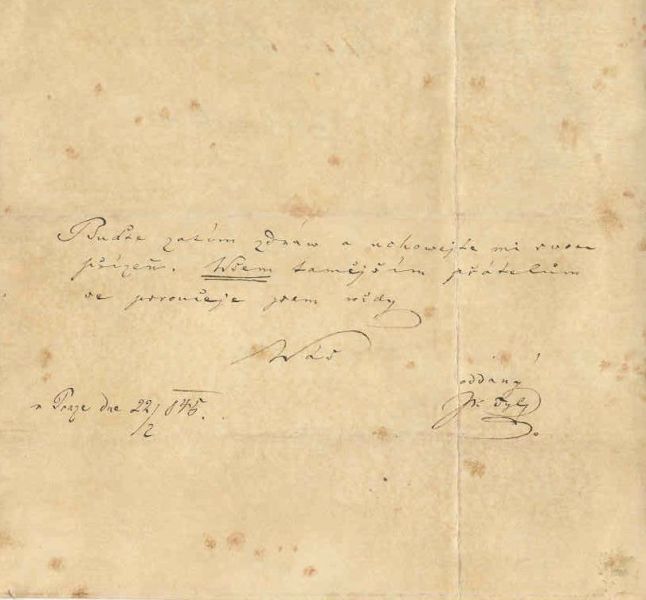 Buďte zatím zdráw a uchowejte mi swou
přízeň. Wšem tamějším přátelům
se poroučeje jsem wždy
Wáš
oddaný
JK Tyl
w Praze dne 22/2 845.